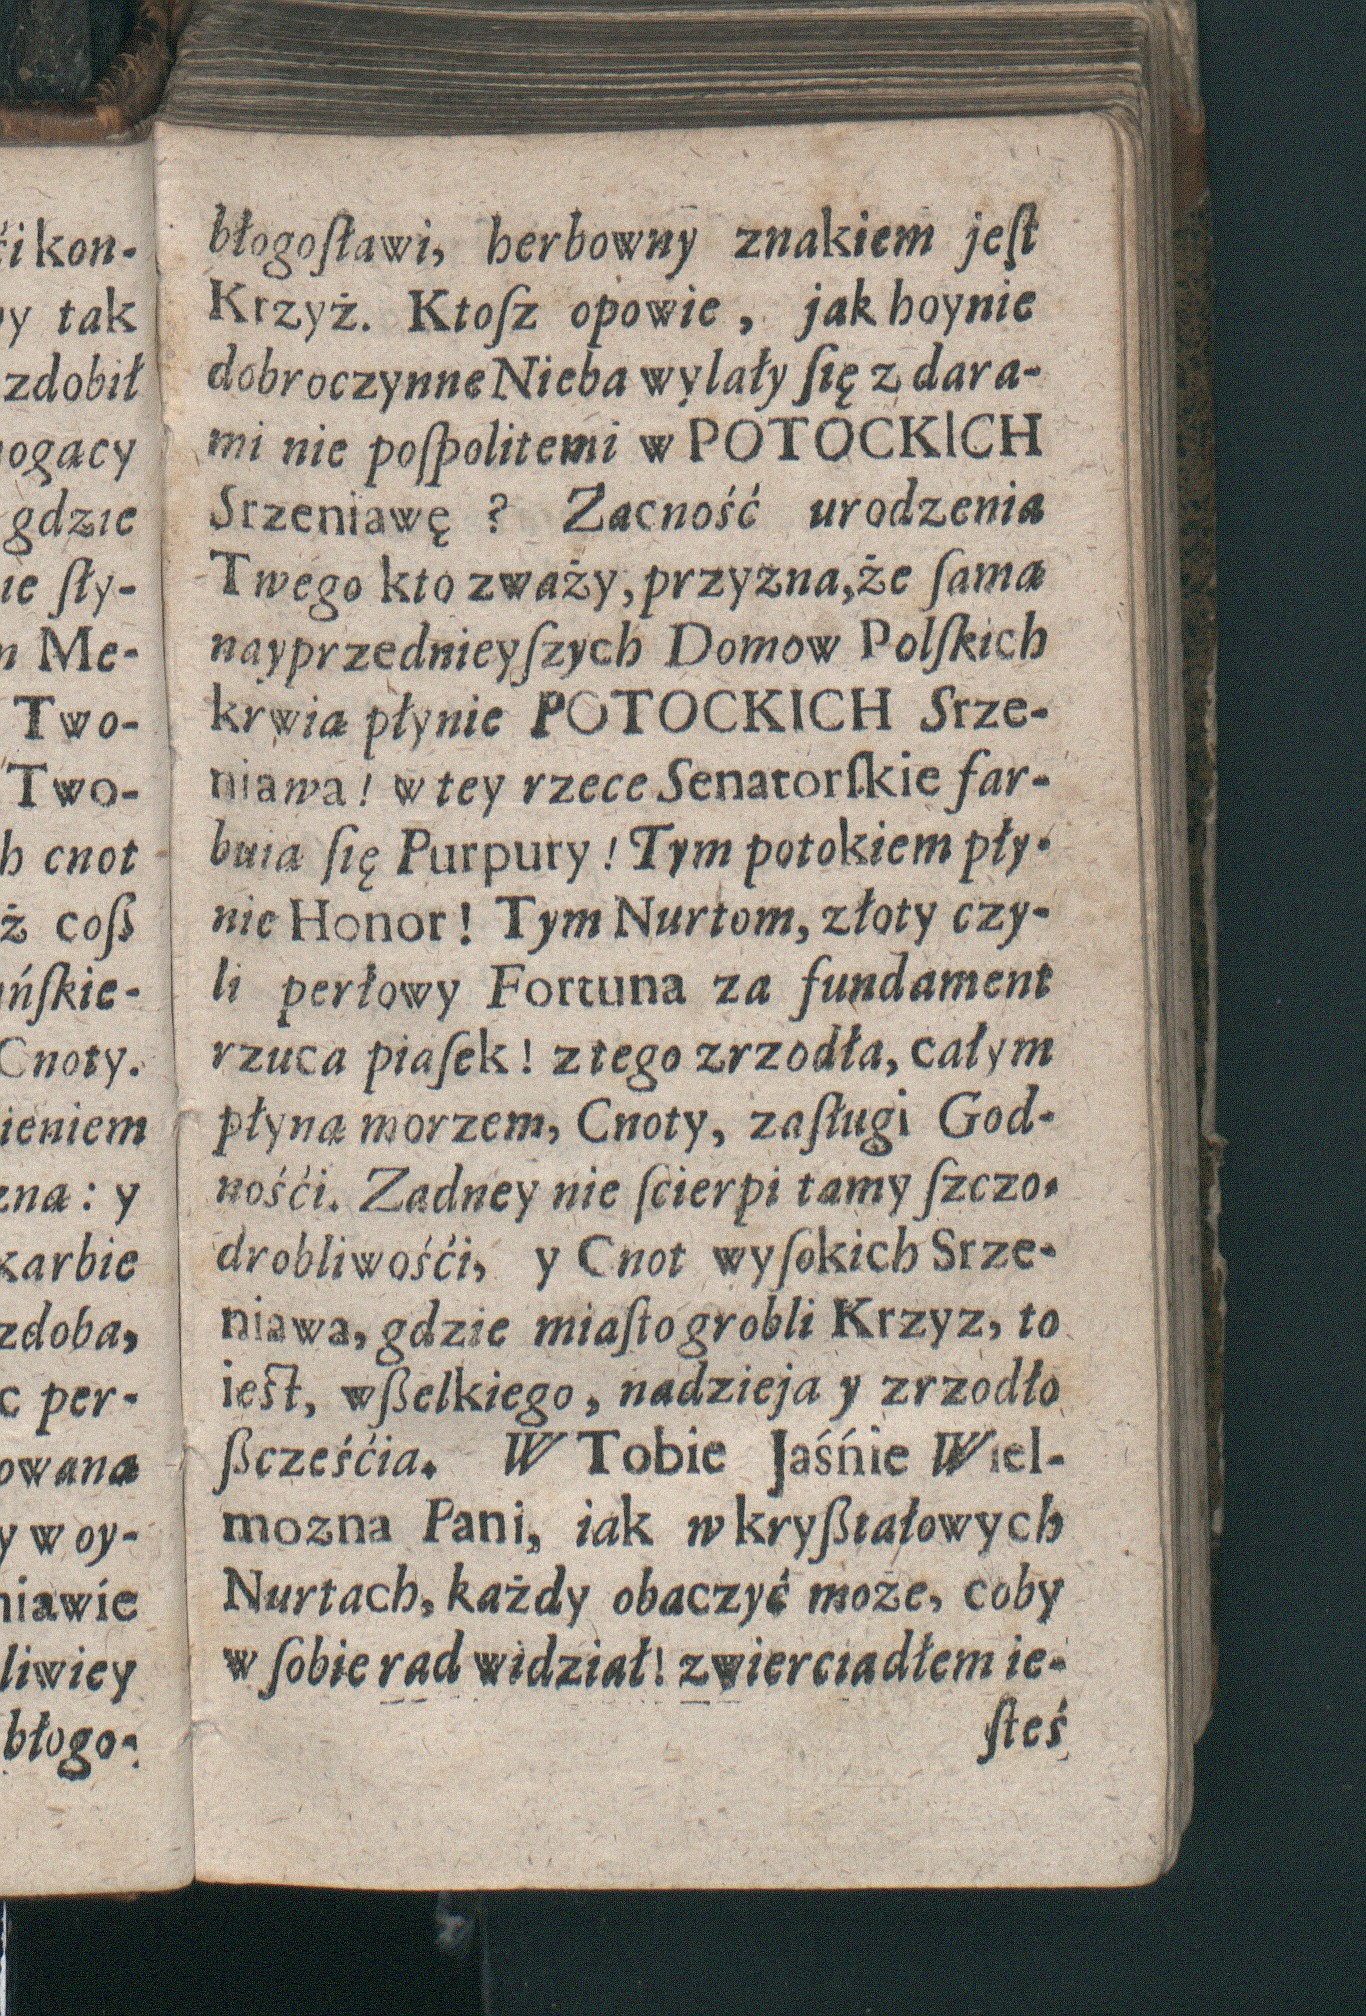 ći kon-
y tak
zdobił
ogacy
gdzie
ie ſły-
Me-
Two-
Two-
cnot
ż coſß
ńſkie-
Cnoty.
ieniem
zna: y
karbie
zdoba,
per-
owana
y woy-
niawie
liwiey
błogo-
błogoſławi, herbowny znakiem jeſt
Krzyż. Ktoſz opowie, jak hoynie
dobroczynne Nieba wylały ſię z dara-
mi nie poſpolitemi w POTOCKICH
Srzeniawę? Zacność urodzenia
Twego kto zważy, przyzna, że ſama
nayprzednieyſzych Domow Polſkich
krwia płynie POTOCKICH Srze-
niawa! w tey rzece Senatorſkie far-
buia ſię Purpury! Tym potokiem pły-
nie Honor! Tym Nurtom, złoty czy-
li perłowy Fortuna za fundament
rzuca piaſek! z tego zrzodła, całym
płyna morzem, Cnoty, zaſługi God-
nośći. Zadney nie ſcierpi tamy ſzczo-
drobliwośći, y Cnot wyſokich Srze-
niawa, gdzie miaſto grobli Krzyz, to
ieſt, wßelkiego, nadzieja y zrzodło
ßcześćia. W Tobie Jaśńie Wiel-
mozna Pani, iak w kryßtałowych
Nurtach, każdy obaczyć może, coby
w ſobie rad widział! zwierciadłem ie-
ſteś